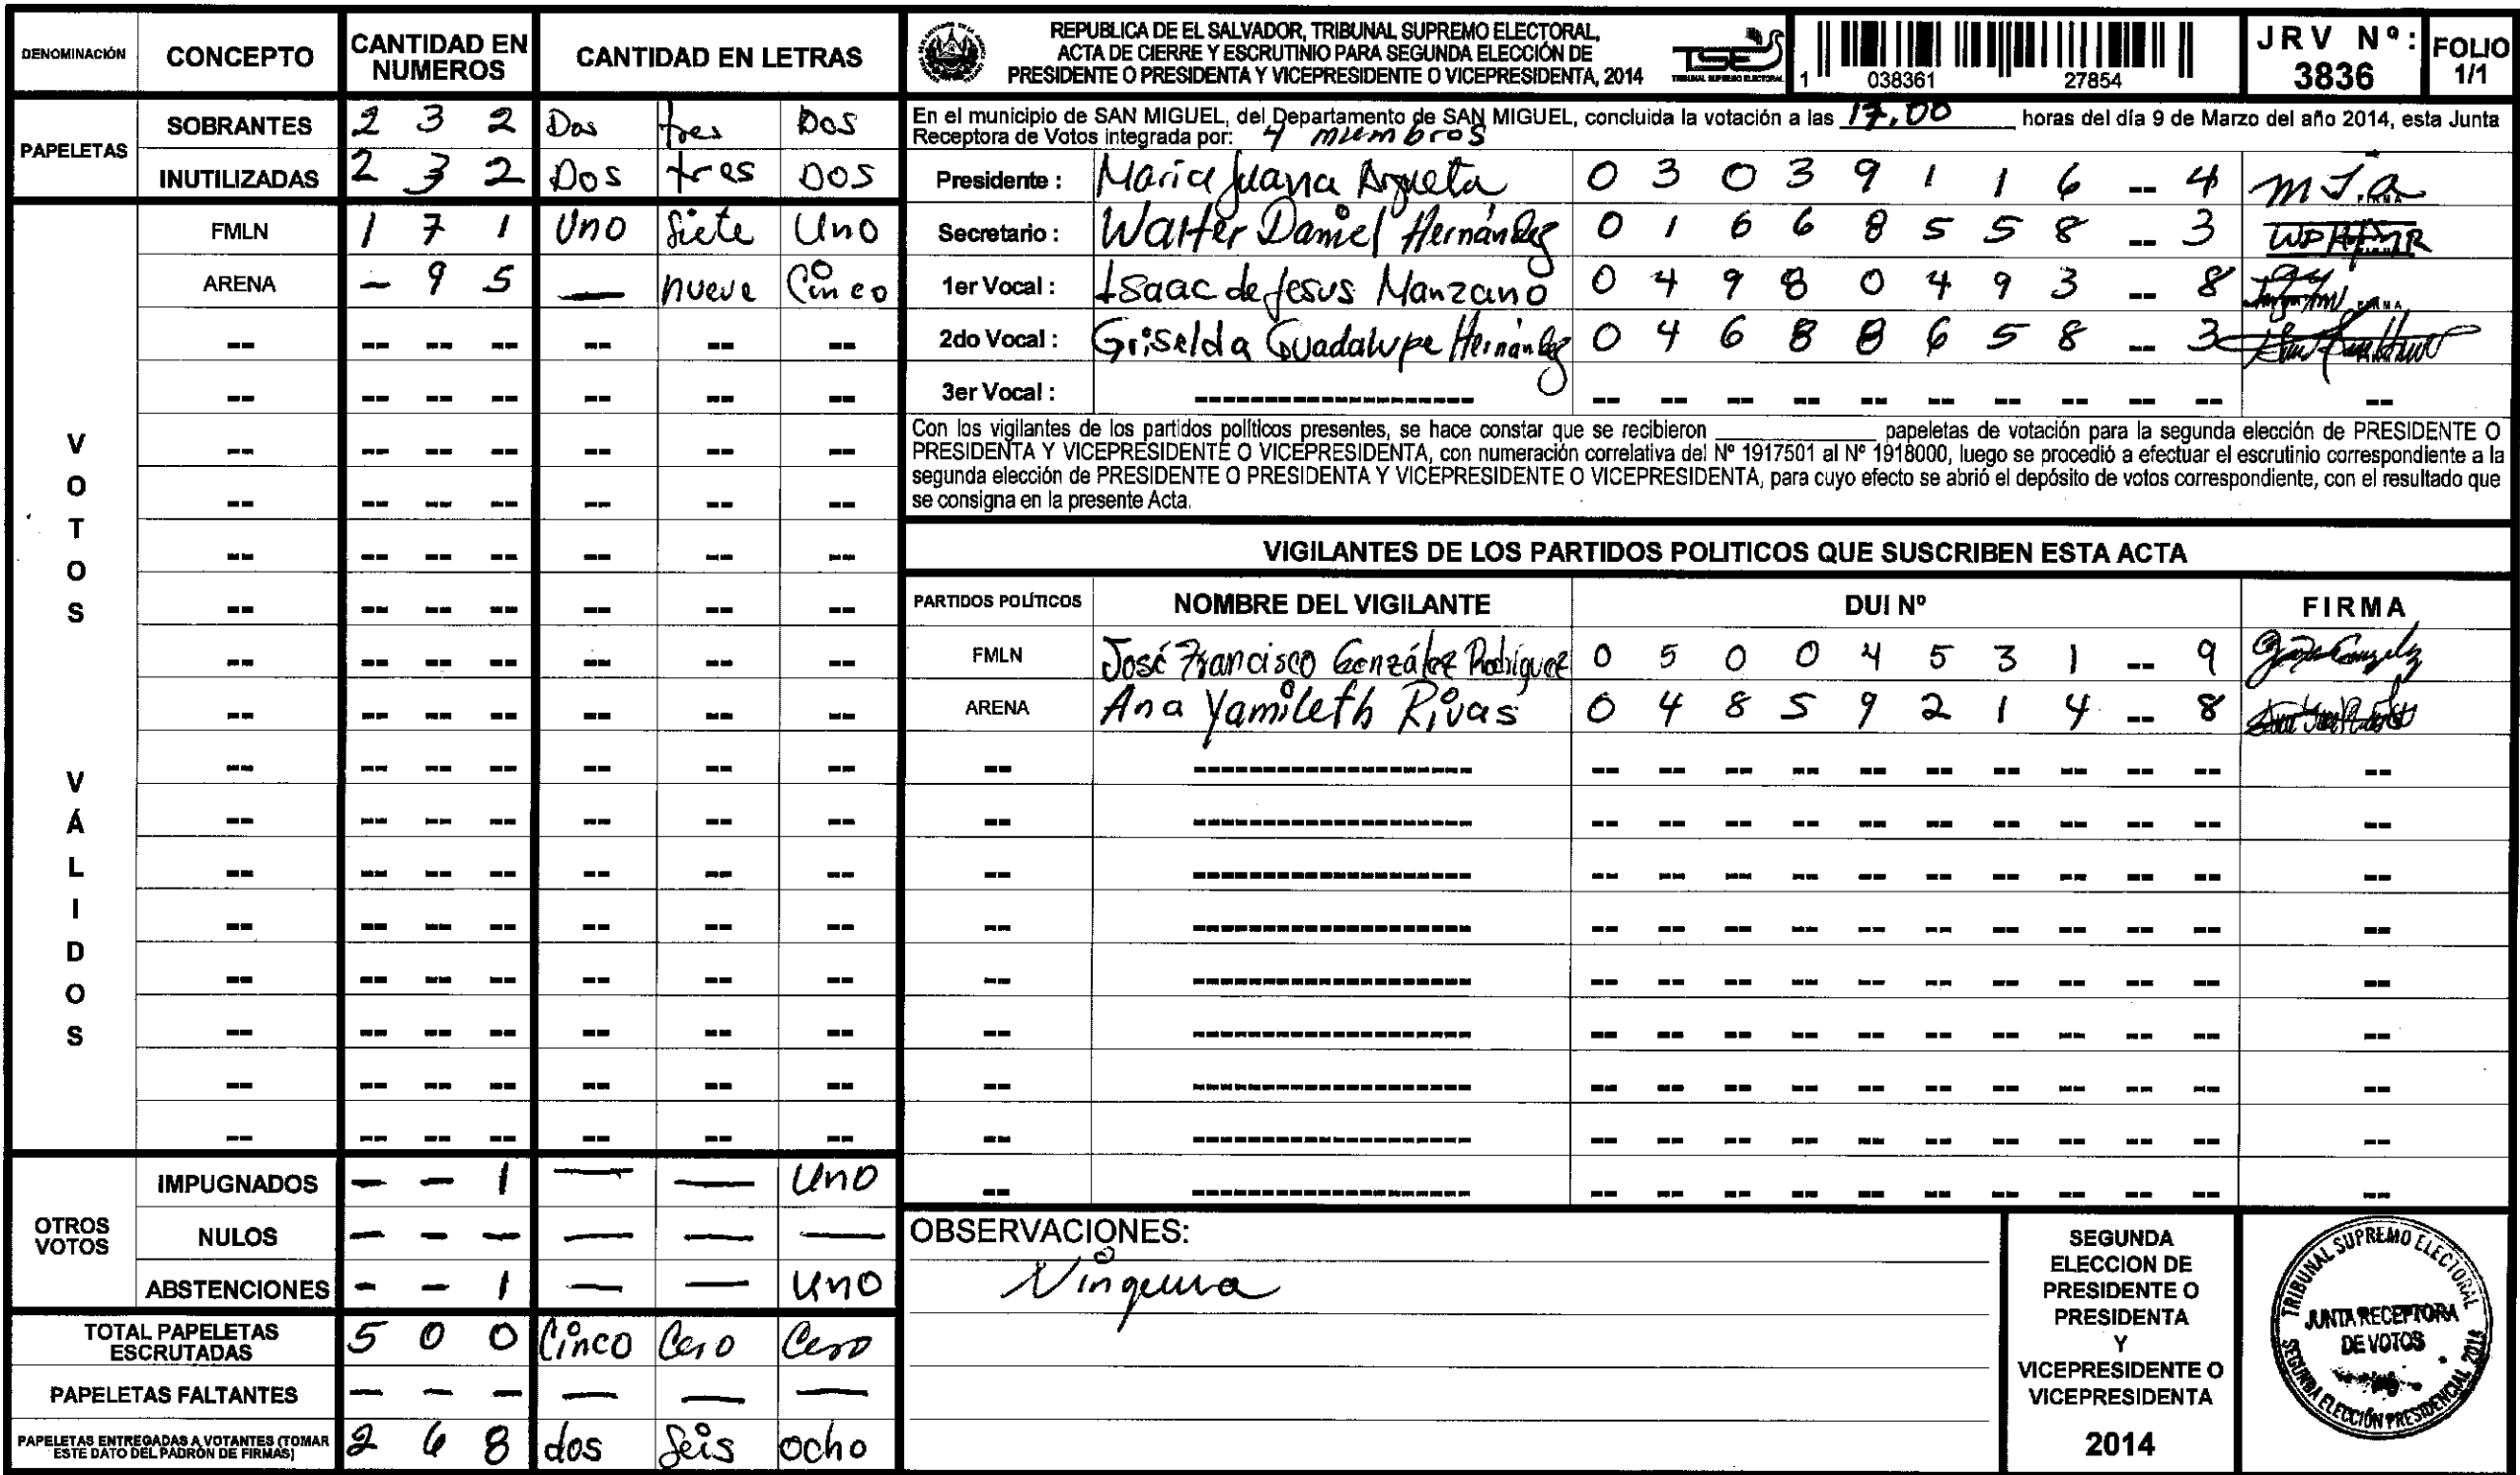 DENOMINACIÓN CONCEPTO CANTIDAD EN NUMEROS CANTIDAD EN LETRAS
PAPELETAS
SOBRANTES 2 3 2 Dos tres Dos
INUTILIZADAS 2 3 2 Dos tres DOS
VOTOS VÁLIDOS
FMLN 1 7 1 Uno Siete Uno
ARENA - 9 5 — nueve Cinco
OTROS VOTOS
IMPUGNADOS - - 1 — — Uno
NULOS - - - — — —
ABSTENCIONES - - 1 — — uno
TOTAL PAPELETAS ESCRUTADAS 5 0 0 Cinco Cero Cero
PAPELETAS FALTANTES - - - — — —
PAPELETAS ENTREGADAS A VOTANTES (TOMAR ESTE DATO DEL PADRÓN DE FIRMAS) 2 6 8 dos seis ocho
REPUBLICA DE EL SALVADOR, TRIBUNAL SUPREMO ELECTORAL,
ACTA DE CIERRE Y ESCRUTINIO PARA SEGUNDA ELECCIÓN DE
PRESIDENTE O PRESIDENTA Y VICEPRESIDENTE O VICEPRESIDENTA, 2014
TSE
TRIBUNAL SUPREMO ELECTORAL
1 038361 27854
JRV Nº: 3836
FOLIO 1/1
En el municipio de SAN MIGUEL, del Departamento de SAN MIGUEL, concluida la votación a las 17,00 horas del día 9 de Marzo del año 2014, esta Junta
Receptora de Votos integrada por: 4 miembros
Presidente : Maria Juana Argueta 0 3 0 3 9 1 1 6 -- 4 M J.A
Secretario : Walter Daniel Hernández 0 1 6 6 8 5 5 8 -- 3
1er Vocal : Isaac de Jesus Manzano 0 4 9 8 0 4 9 3 -- 8
2do Vocal : Griselda Guadalupe Hernández 0 4 6 8 8 6 5 8 -- 3
3er Vocal :
Con los vigilantes de los partidos políticos presentes, se hace constar que se recibieron ____________ papeletas de votación para la segunda elección de PRESIDENTE O
PRESIDENTA Y VICEPRESIDENTE O VICEPRESIDENTA, con numeración correlativa del Nº 1917501 al Nº 1918000, luego se procedió a efectuar el escrutinio correspondiente a la
segunda elección de PRESIDENTE O PRESIDENTA Y VICEPRESIDENTE O VICEPRESIDENTA, para cuyo efecto se abrió el depósito de votos correspondiente, con el resultado que
se consigna en la presente Acta.
VIGILANTES DE LOS PARTIDOS POLITICOS QUE SUSCRIBEN ESTA ACTA
PARTIDOS POLÍTICOS NOMBRE DEL VIGILANTE DUI Nº FIRMA
FMLN José Francisco González Rodríguez 0 5 0 0 4 5 3 1 -- 9
ARENA Ana Yamileth Rivas 0 4 8 5 9 2 1 4 -- 8
OBSERVACIONES:
Ninguna
SEGUNDA
ELECCION DE
PRESIDENTE O
PRESIDENTA
Y
VICEPRESIDENTE O
VICEPRESIDENTA
2014
TRIBUNAL SUPREMO ELECTORAL
JUNTA RECEPTORA
DE VOTOS
SEGUNDA ELECCIÓN PRESIDENCIAL 2014